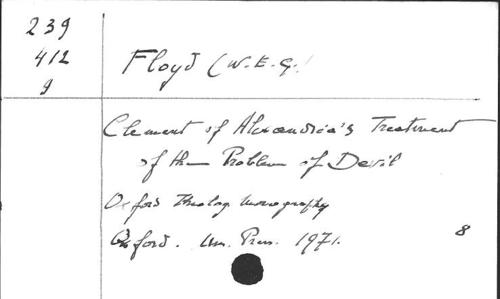 239
412
g
Floyd (W.E.G.)
Clement of Alexandria's Treatment
of the Problem of Devil
Oxford Theolog monography
Oxford. Un. Press. 1971.
8